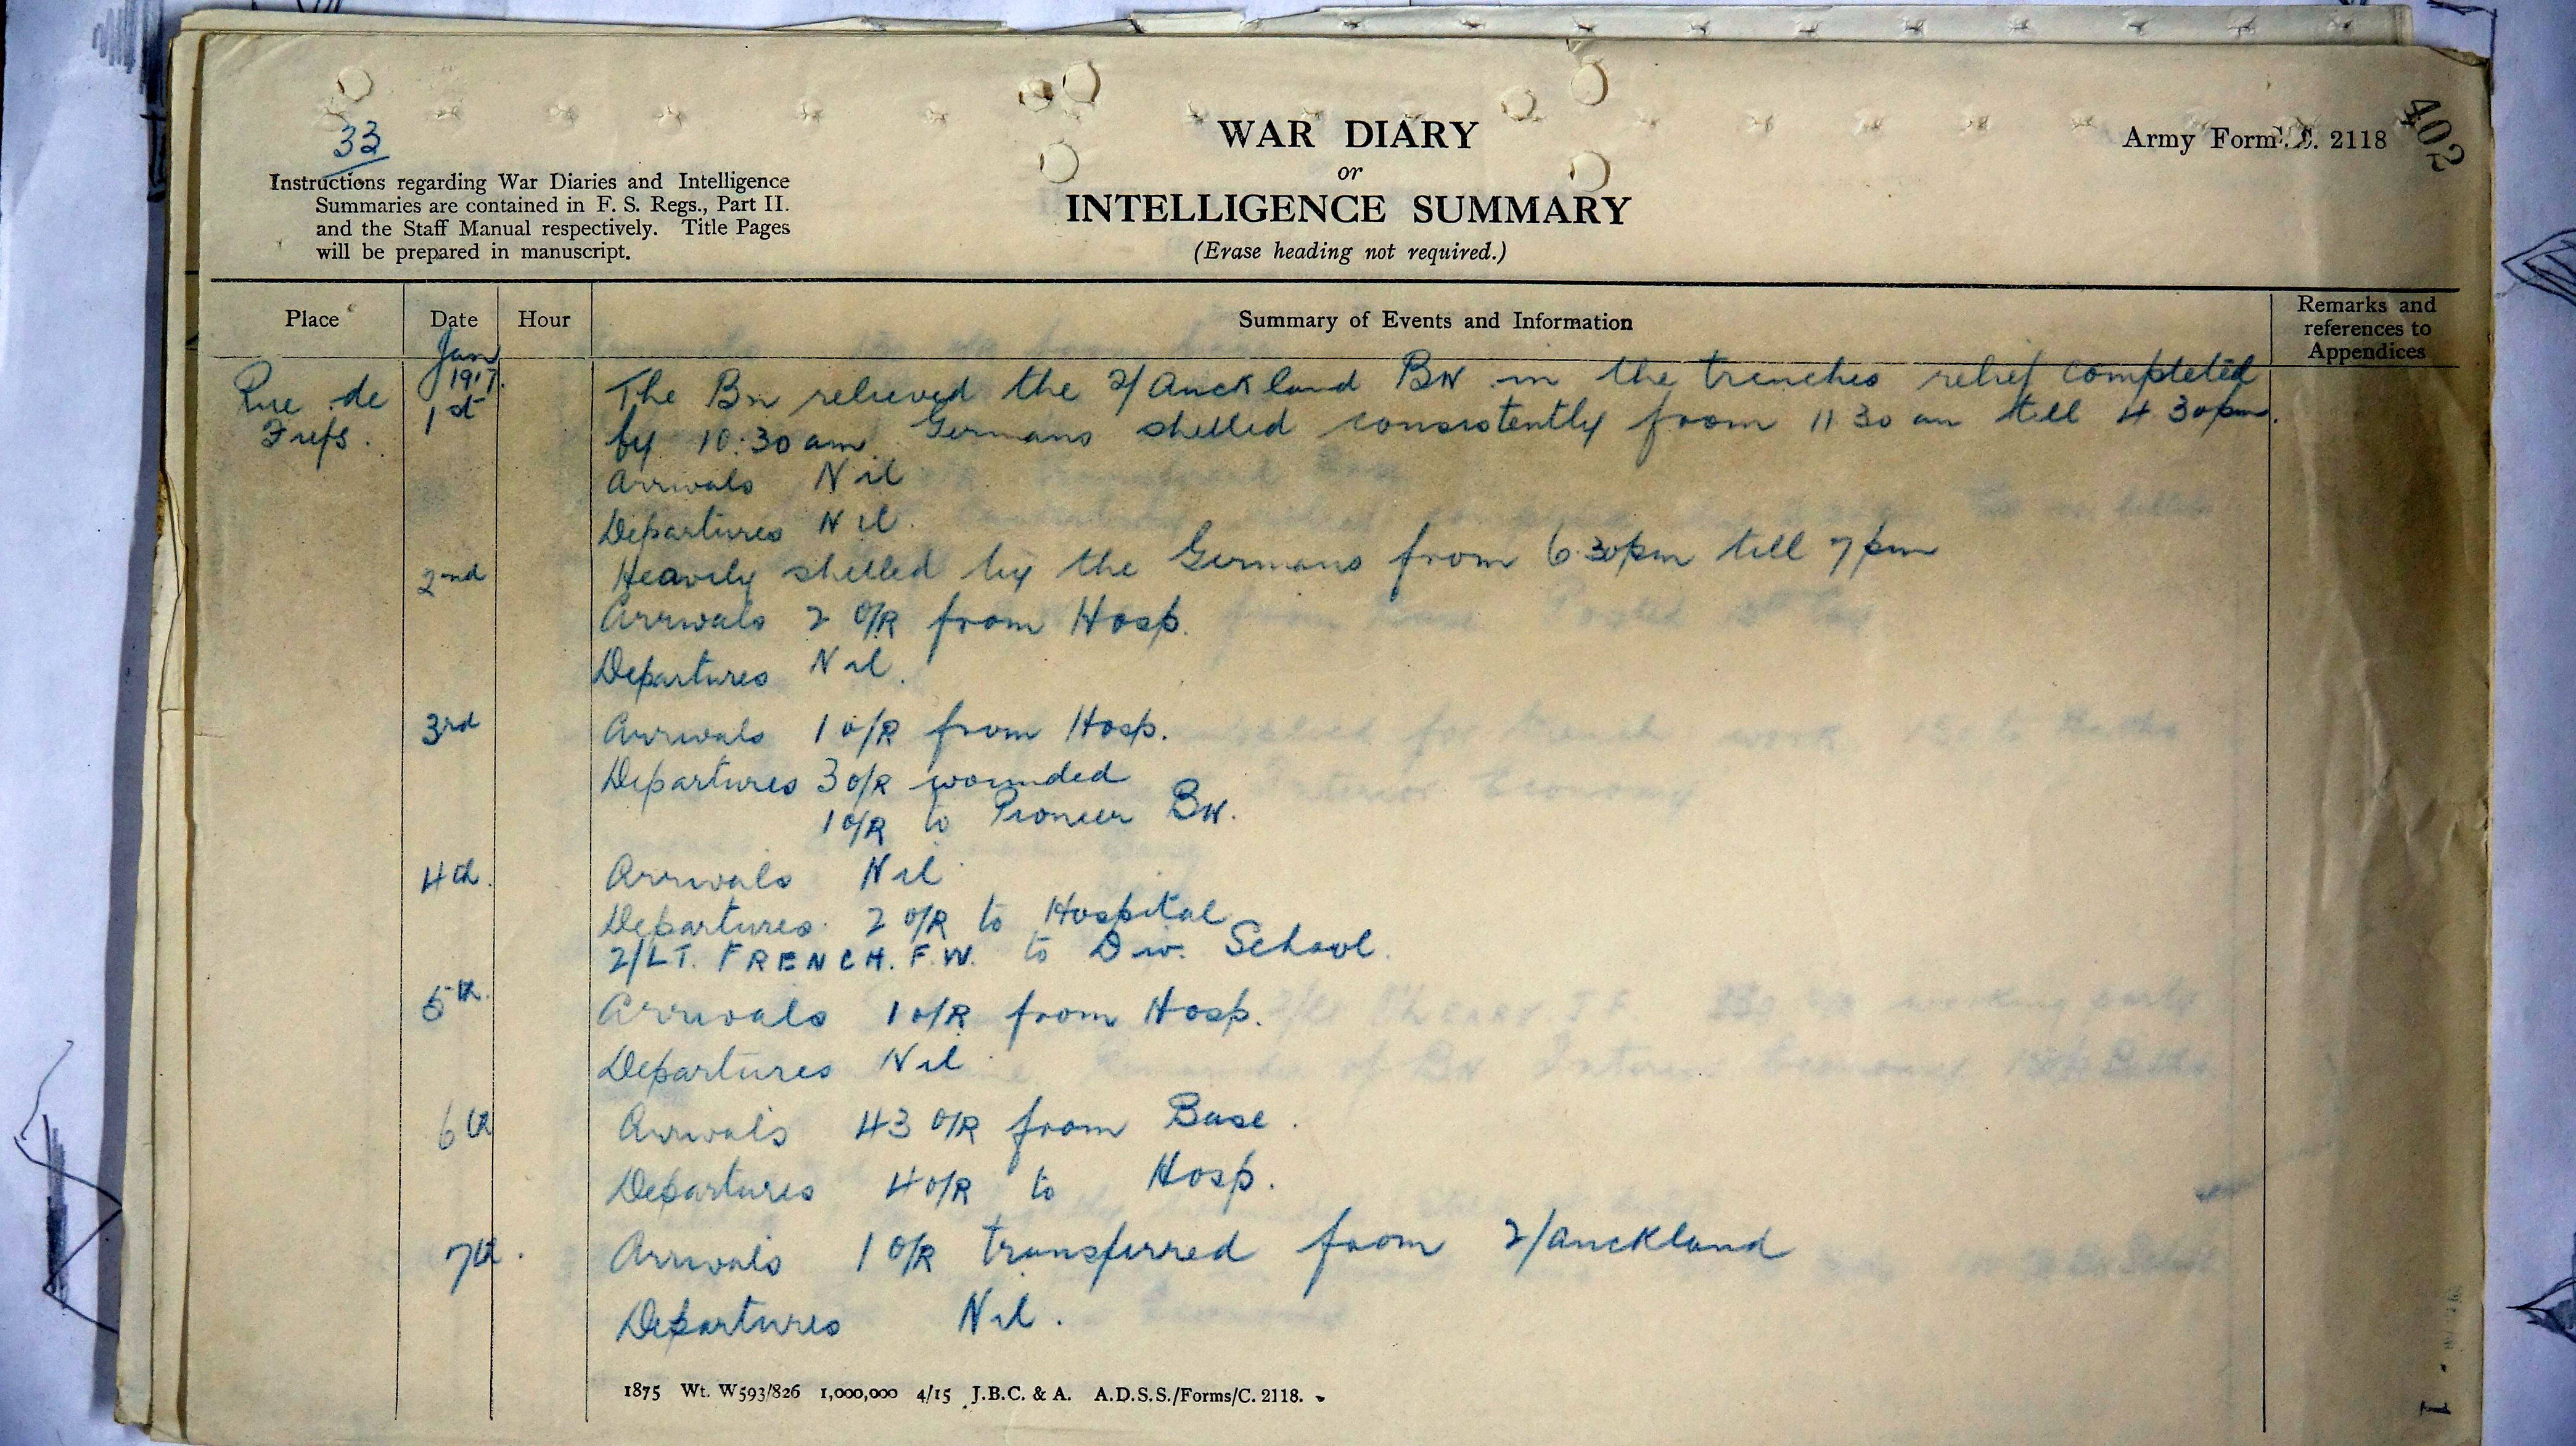 402
33
WAR DIARY
or
INTELLIGENCE SUMMARY
(Erase heading not required.)
Army Form C. 2118
Instructions regarding War Diaries and Intelligence
Summaries are contained in F. S. Regs., Part II.
and the Staff Manual respectively. Title Pages
will be prepared in manuscript.
Place
Date
Hour
Summary of Events and Information
Remarks and
references to
Appendices
Jan
1917.
Rue de
1st
The Bn relieved the 2/Auckland BN in the trenches relief completed
by 10.30 am. Germans shelled consistently from 11 30 am till 4 30pm.
Arrivals Nil
Departures Nil.
2nd
Heavily shelled by the Germans from 6.30pm till 7pm
Arrivals 2 O/R from Hosp.
Departures Nil.
3rd
Arrivals 1 O/R from Hosp.
Departures 3 O/R wounded
1 O/R to Pioneer BN.
4th.
Arrivals Nil
Departures. 2 O/R to Hospital
2/LT. FRENCH. F.W. to Div. School.
5th.
Arrivals 1 O/R from Hosp.
Departures Nil
6th
Arrivals 43 O/R from Base.
Departures 4 O/R to Hosp.
7th.
Arrivals 1 O/R transferred from 2/Auckland
Departures Nil.
1875 Wt. W593/826 1,000,000 4/15 J.B.C. & A. A.D.S.S./Forms/C. 2118.